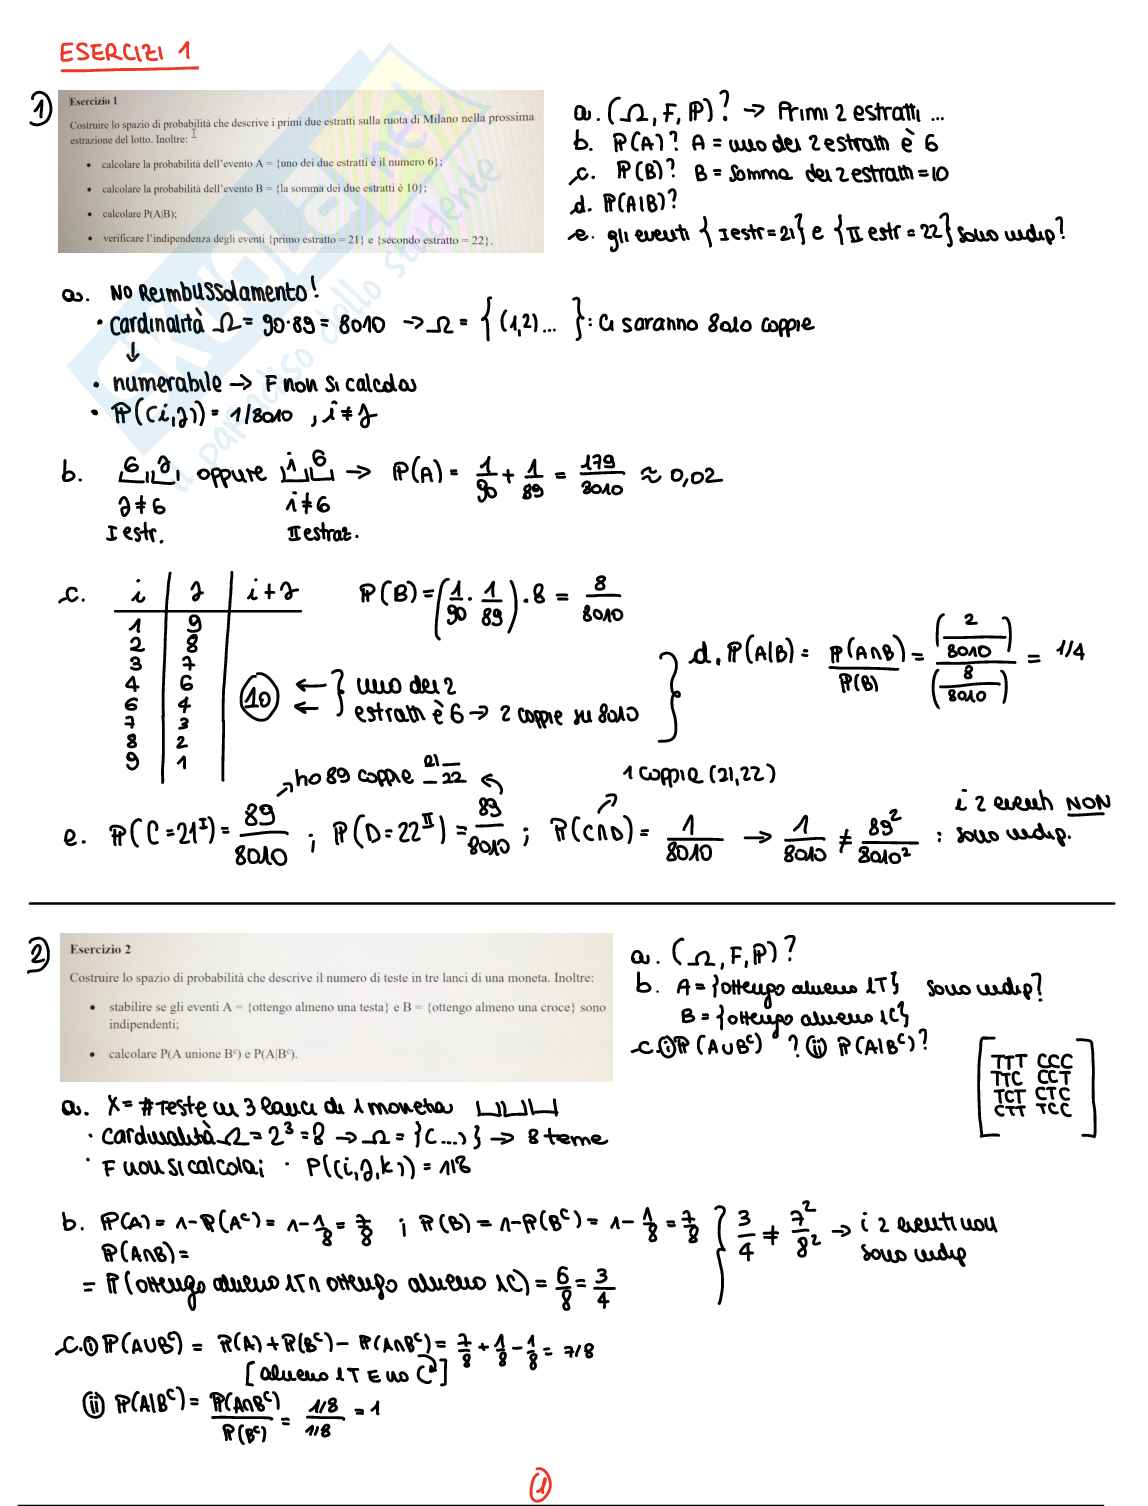 ESERCIZI 1
1
Esercizio 1
Costruire lo spazio di probabilità che descrive i primi due estratti sulla ruota di Milano nella prossima
estrazione del lotto. Inoltre:
• calcolare la probabilità dell'evento A = {uno dei due estratti è il numero 6};
• calcolare la probabilità dell'evento B = {la somma dei due estratti è 10};
• calcolare P(A|B);
• verificare l'indipendenza degli eventi {primo estratto = 21} e {secondo estratto = 22}.
a. (Ω, F, P)? → Primi 2 estratti ...
b. P(A)? A = uno dei 2 estratti è 6
c. P(B)? B = somma dei 2 estratti = 10
d. P(A|B)?
e. gli eventi {I estr = 21} e {II estr = 22} sono indip?
SKUOLA.net
il paradiso dello studente
a. NO Reimbussolamento!
• Cardinalità Ω = 90·89 = 8010 → Ω = {(1,2)... }: ci saranno 8010 coppie
↓
• numerabile → F non si calcola
• P((i,j)) = 1/8010 , i ≠ j
b. 6 j oppure i 6 → P(A) = 1/90 + 1/89 = 179/8010 ≈ 0,02
j ≠ 6 i ≠ 6
I estr. II estraz.
c. i j i+j P(B) = (1/90 · 1/89) · 8 = 8/8010
1 9
2 8
3 7
4 6
6 4
7 3
8 2
9 1
10 ← ← } uno dei 2
estratti è 6 → 2 coppie su 8010
} d. P(A|B) = P(A∩B)/P(B) = (2/8010)/(8/8010) = 1/4
ho 89 coppie 21_ _22
1 coppia (21,22)
e. P(C = 21ᴵ) = 89/8010 ; P(D = 22ᴵᴵ) = 89/8010 ; P(C∩D) = 1/8010 → 1/8010 ≠ 89²/8010² : i 2 eventi NON
sono indip.
2
Esercizio 2
Costruire lo spazio di probabilità che descrive il numero di teste in tre lanci di una moneta. Inoltre:
• stabilire se gli eventi A = {ottengo almeno una testa} e B = {ottengo almeno una croce} sono
indipendenti;
• calcolare P(A unione Bᶜ) e P(A|Bᶜ).
a. (Ω, F, P)?
b. A = {ottengo almeno 1T} sono indip?
B = {ottengo almeno 1C}
c. (i) P(A∪Bᶜ) ? (ii) P(A|Bᶜ)?
TTT CCC
TTC CCT
TCT CTC
CTT TCC
a. X = # Teste in 3 lanci di 1 moneta
• Cardinalità Ω = 2³ = 8 → Ω = {(...)} → 8 terne
• F non si calcola; • P((i,j,k)) = 1/8
b. P(A) = 1-P(Aᶜ) = 1-1/8 = 7/8 ; P(B) = 1-P(Bᶜ) = 1-1/8 = 7/8 } 3/4 ≠ 7²/8² → i 2 eventi non
sono indip
P(A∩B) =
= P(ottengo almeno 1T ∩ ottengo almeno 1C) = 6/8 = 3/4
c. (i) P(A∪Bᶜ) = P(A)+P(Bᶜ)-P(A∩Bᶜ) = 7/8 + 1/8 - 1/8 = 7/8
[almeno 1T E no C]
(ii) P(A|Bᶜ) = P(A∩Bᶜ)/P(Bᶜ) = (1/8)/(1/8) = 1
1